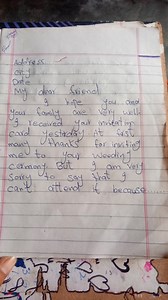 Address
City
Date
My dear friend
I hope you and
your family are very well
I received your invitation
card yesterday. At first
many thanks for inviting
me to your weeding
ceromony But I am very
sorry to say that I
can't attend it because